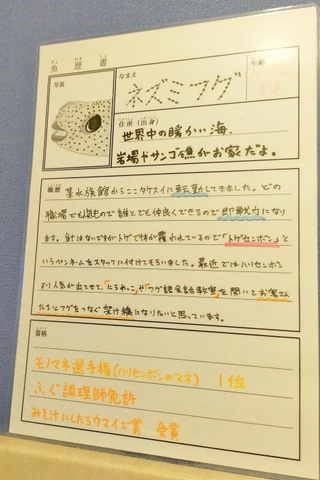 魚歴書
写真
なまえ
ネズミフグ
年齢
住所(出身)
世界中の暖かい海.
岩場やサンゴ礁がお家だよ。
職歴 某水族館からここタケスイに転勤してきました。どの
職場でも人気もので誰とでも仲良くできるので即戦力になり
ます。針はないですがトゲで体が覆われているので「トゲセンボン」と
いうペンネームをスタッフに付けてもらいました。最近ではハリセンボン
より人気が出てきて、「にらめっこ」や「フグ語会話教室」を開いてお客さん
たちとフグをつなぐ架け橋になりたいと思っています。
資格
モノマネ選手権(ハリセンボンのマネ) 1位
ふぐ調理師免許
みそ汁にしたらウマイで賞 受賞